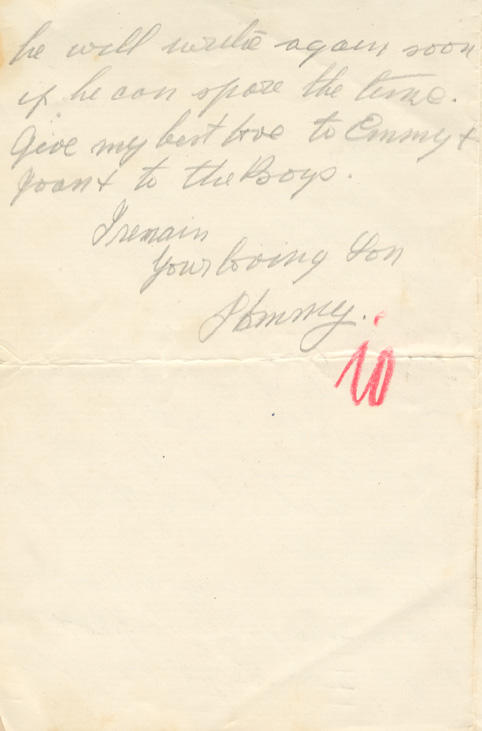 he will write again soon
if he can spare the time.
Give my best love to Emmy &
Joan & to the Boys.
I remain
Your loving Son
Tommy.
10